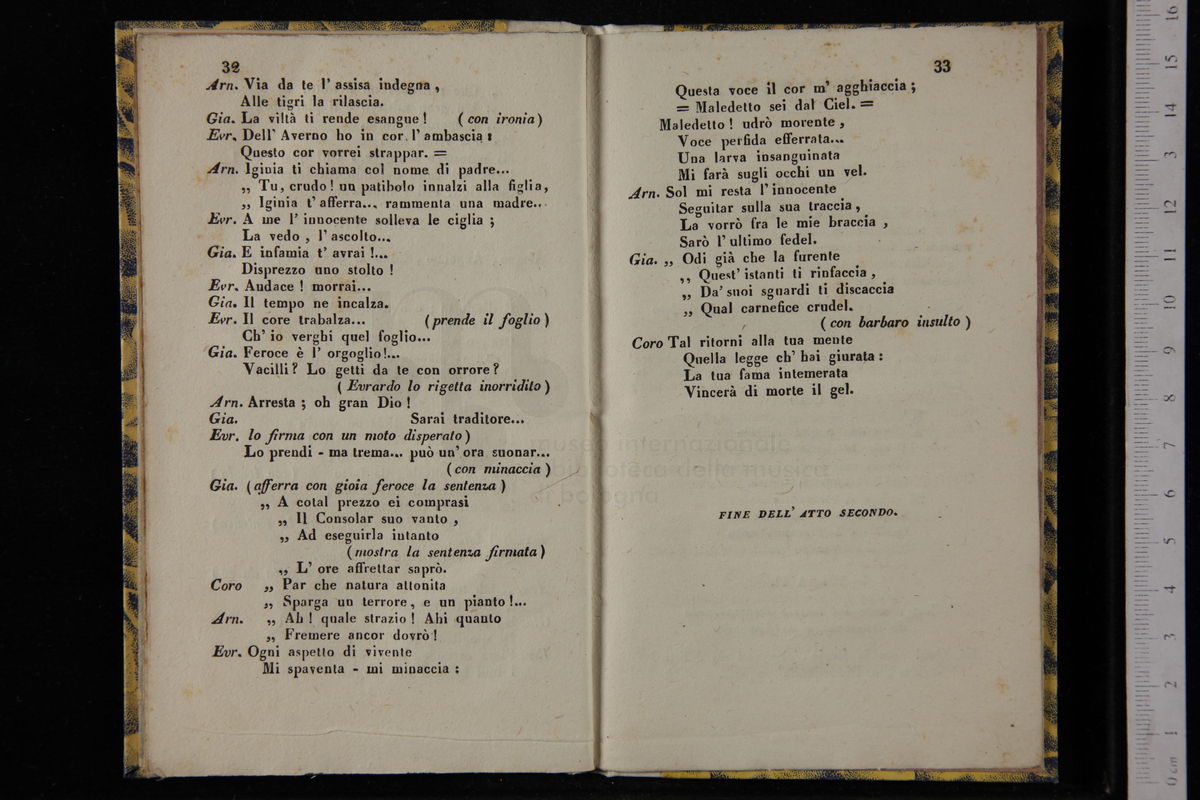 32
Arn. Via da te l' assisa indegna ,
Alle tigri la rilascia.
Gia. La viltà ti rende esangue ! ( con ironia )
Evr. Dell' Averno ho in cor l' ambascia :
Questo cor vorrei strappar. =
Arn. Iginia ti chiama col nome di padre...
„ Tu, crudo ! un patibolo innalzi alla figlia,
„ Iginia t' afferra... rammenta una madre...
Evr. A me l' innocente solleva le ciglia ;
La vedo , l' ascolto...
Gia. E infamia t' avrai !...
Disprezzo uno stolto !
Evr. Audace ! morrai...
Gia. Il tempo ne incalza.
Evr. Il core trabalza... ( prende il foglio )
Ch' io verghi quel foglio...
Gia. Feroce è l' orgoglio !...
Vacilli ? Lo getti da te con orrore ?
( Evrardo lo rigetta inorridito )
Arn. Arresta ; oh gran Dio !
Gia. Sarai traditore...
Evr. lo firma con un moto disperato )
Lo prendi - ma trema... può un' ora suonar...
( con minaccia )
Gia. ( afferra con gioia feroce la sentenza )
„ A cotal prezzo ei comprasi
„ Il Consolar suo vanto ,
„ Ad eseguirla intanto
( mostra la sentenza firmata )
„ L' ore affrettar saprò.
Coro „ Par che natura attonita
„ Sparga un terrore, e un pianto !...
Arn. „ Ah ! quale strazio ! Ahi quanto
„ Fremere ancor dovrò !
Evr. Ogni aspetto di vivente
Mi spaventa - mi minaccia :
33
Questa voce il cor m' agghiaccia ;
= Maledetto sei dal Ciel. =
Maledetto ! udrò morente ,
Voce perfida efferrata...
Una larva insanguinata
Mi farà sugli occhi un vel.
Arn. Sol mi resta l' innocente
Seguitar sulla sua traccia ,
La vorrò fra le mie braccia ,
Sarò l' ultimo fedel.
Gia. „ Odi già che la furente
„ Quest' istanti ti rinfaccia ,
„ Da' suoi sguardi ti discaccia
„ Qual carnefice crudel.
( con barbaro insulto )
Coro Tal ritorni alla tua mente
Quella legge ch' hai giurata :
La tua fama intemerata
Vincerà di morte il gel.
FINE DELL' ATTO SECONDO.
museo internazionale
biblioteca della musica
di bologna
0 cm 1 2 3 4 5 6 7 8 9 10 11 12 13 14 15 16